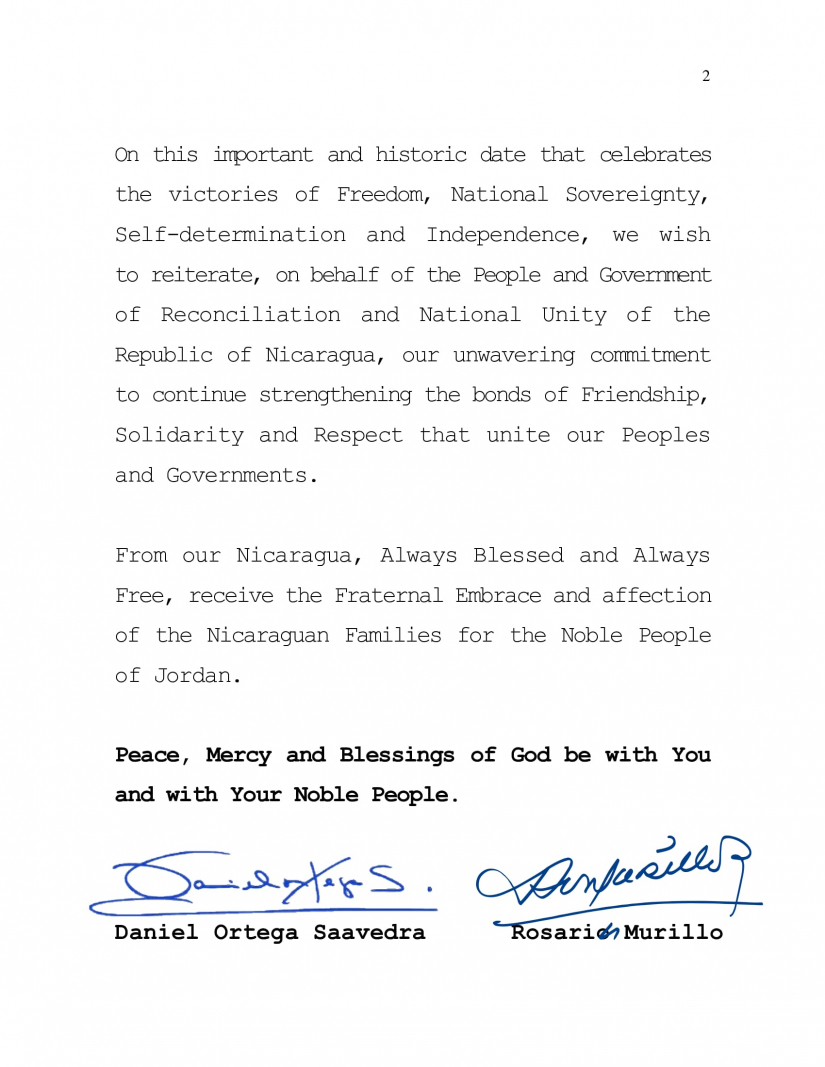 2
On this important and historic date that celebrates
the victories of Freedom, National Sovereignty,
Self-determination and Independence, we wish
to reiterate, on behalf of the People and Government
of Reconciliation and National Unity of the
Republic of Nicaragua, our unwavering commitment
to continue strengthening the bonds of Friendship,
Solidarity and Respect that unite our Peoples
and Governments.
From our Nicaragua, Always Blessed and Always
Free, receive the Fraternal Embrace and affection
of the Nicaraguan Families for the Noble People
of Jordan.
Peace, Mercy and Blessings of God be with You
and with Your Noble People.
Daniel Ortega S.
Daniel Ortega Saavedra Rosario Murillo